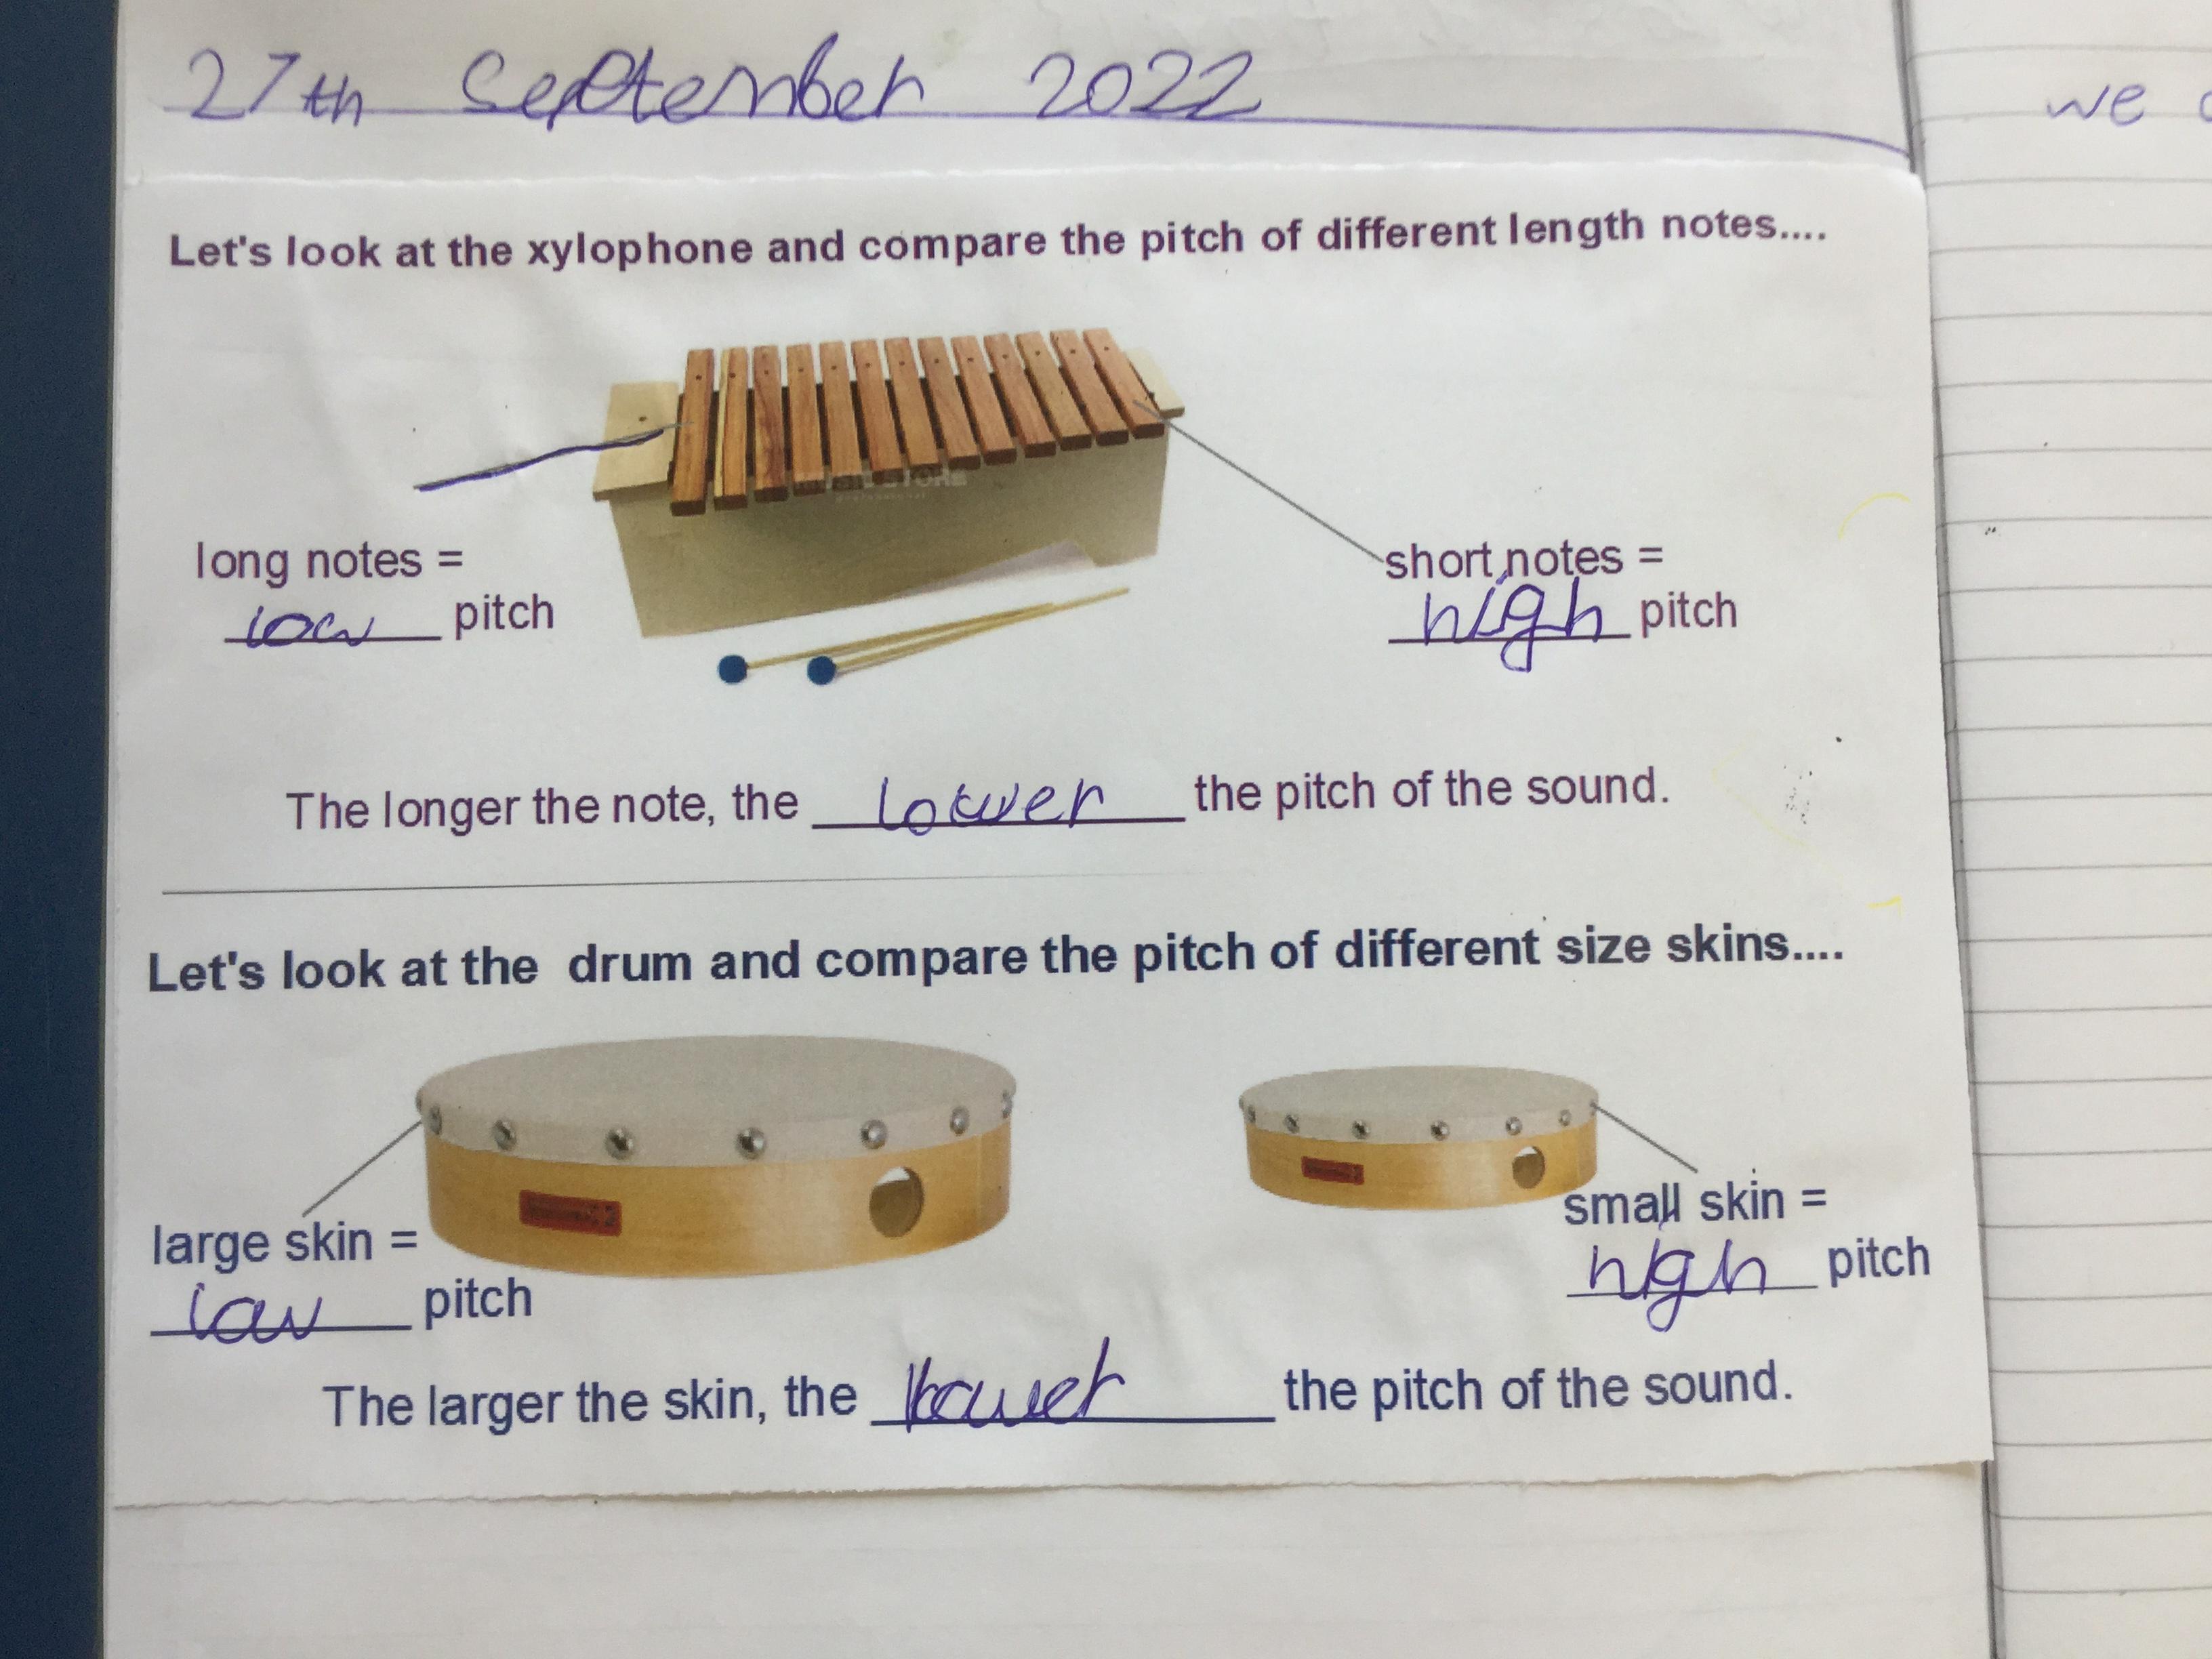 27th September 2022
we
Let's look at the xylophone and compare the pitch of different length notes....
long notes =
low pitch
short notes =
high pitch
The longer the note, the lower the pitch of the sound.
Let's look at the drum and compare the pitch of different size skins....
large skin =
low pitch
small skin =
high pitch
The larger the skin, the lower the pitch of the sound.